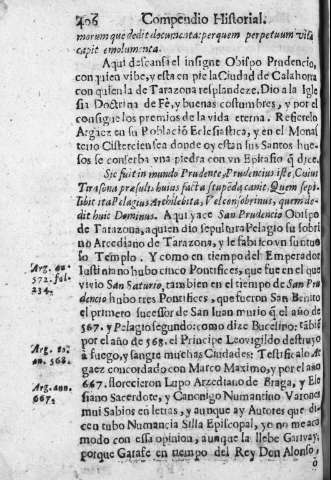 406 Compendio Historial.
morum que dedit documenta: per quem perpetuum vita
capit emolumenta.
Aqui descansa el insigne Obispo Prudencio,
con quien vibe, y esta en pie la Ciudad de Calahorra
con quien la de Tarazona resplandeze. Dio a la Igle
sia Doctrina de Fè, y buenas costumbres, y por el
consigue los premios de la vida eterna. Refierelo
Argaez en su Poblaciõ Eclesiastica, y en el Monas
terio Cisterciense a donde oy estan sus Santos hue-
sos se conserba vna piedra con vn Epitafio q̃ dice.
Sic fuit in mundo Prudente, Prudencius iste, Cuius
Tirasona præsulis huius facta stupẽda canit. Quem sepi
libit ita Pelagius Archilebita, Vel consobrinus, quem de-
dit huic Dominus. Aqui yace San Prudencio Obispo
de Tarazona, a quien dio sepultura Pelagio su sobri
no Arcediano de Tarazona, y le fabico vn suntuo
so Templo. Y como en tiempo del Emperador
Iustiniano hubo cinco Pontifices, que fue en el que
vivio San Saturio, tambien en el tiempo de San Pru
dencio hubo tres Pontifices, que fueron San Benito
el primero sucessor de San Iuan murio q̃ el año de
567. y Pelagio segundo: como dize Bucelino: tãbiẽ
por el año de 568. el Principe Leovigildo destruyo
à fuego, y sangre muchas Ciudades: Testificalo Ar
gaez concordado con Marco Maximo, y por el año
667. florecieron Lupo Arzediano de Braga, y Ele
fiano Sacerdote, y Canonigo Numantino Varones
mui Sabios en letras, y aunque ay Autores que di-
cen tubo Numancia Silla Episcopal, ye no me aco
modo con essa opinion, aunque la llebe Garivay,
porque Garase en tiempo del Rey Don Alonso,
ò
Arg.
572. fol.
234.
Arg.
an. 568.
Arg. ann.
667.